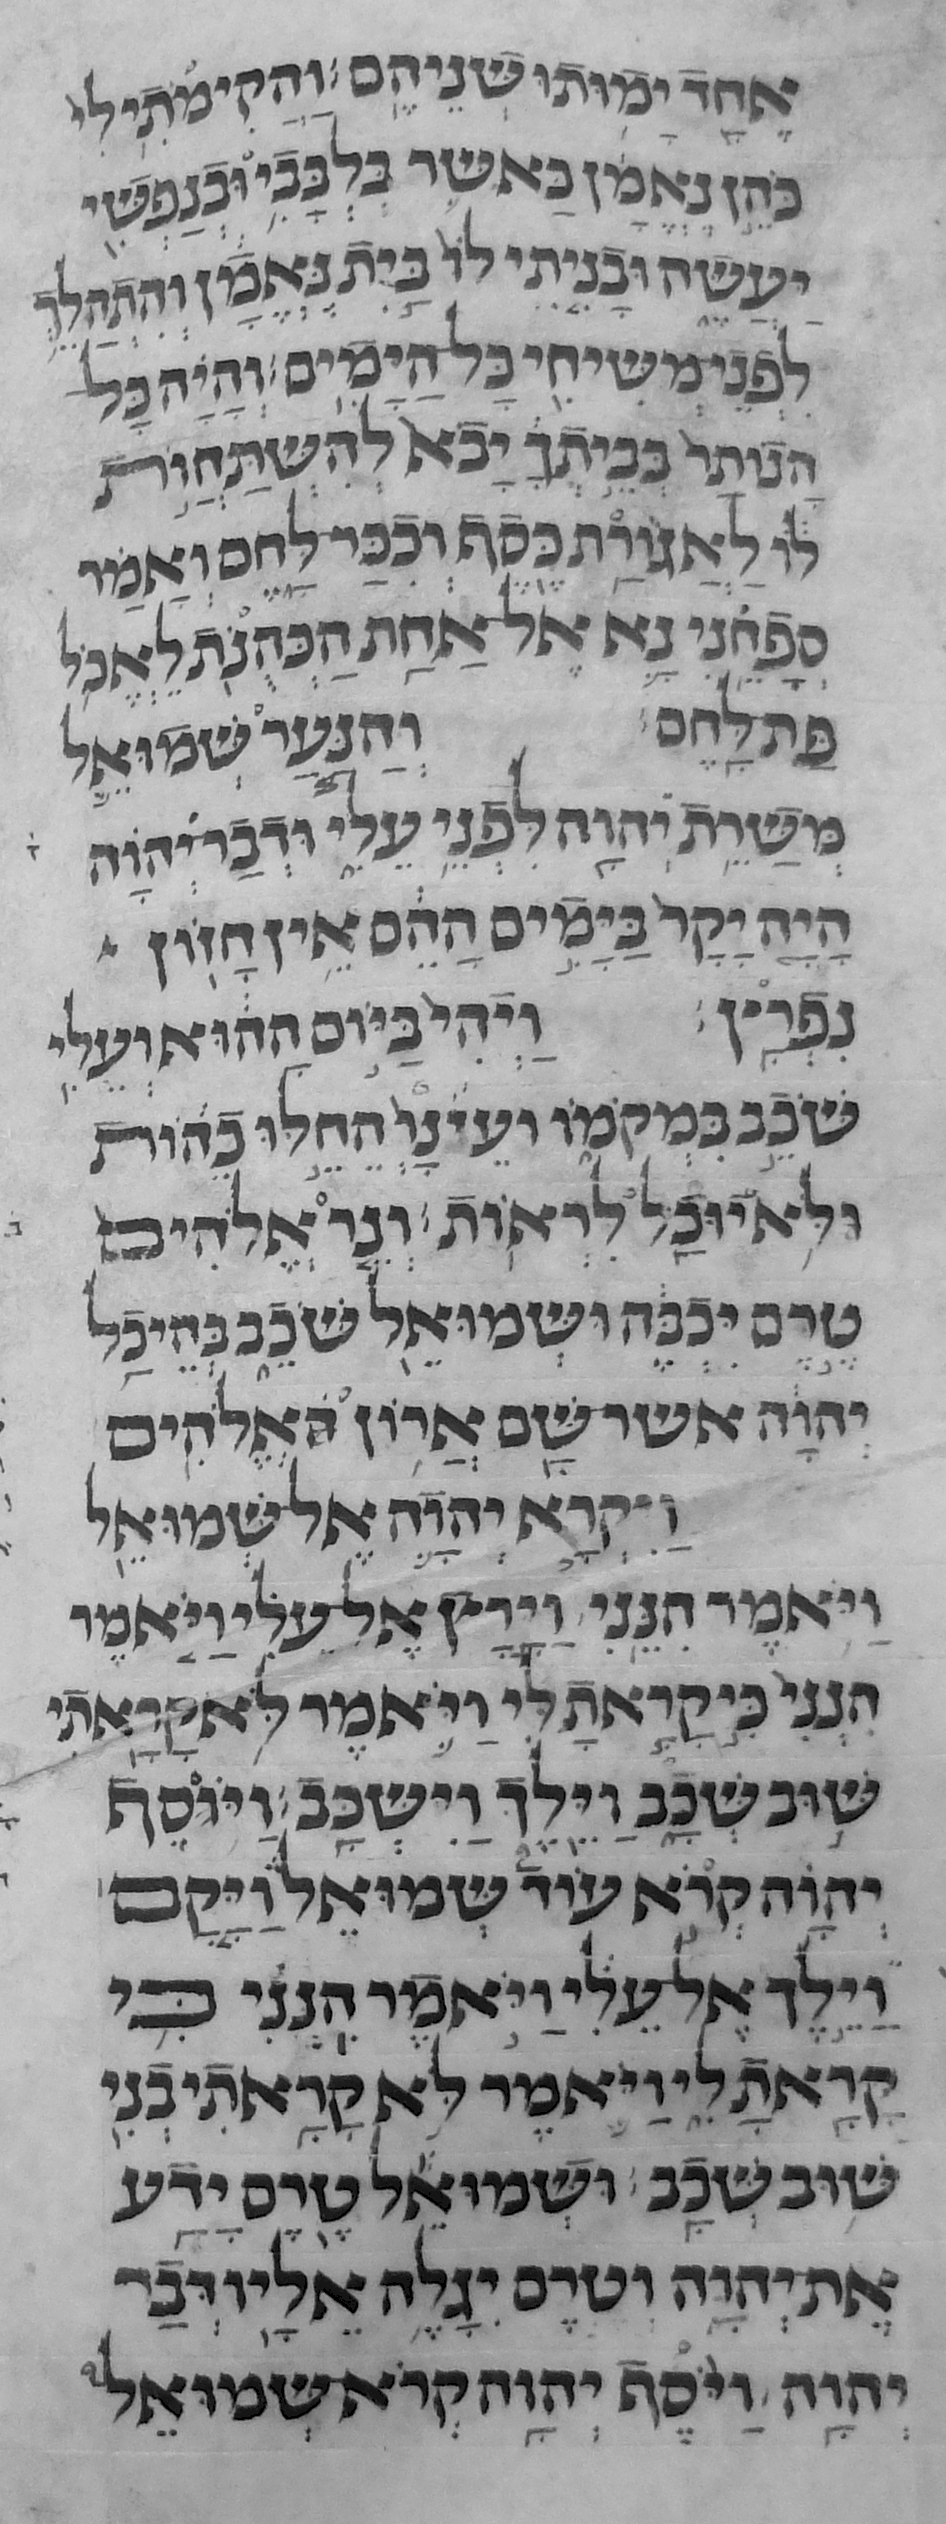 אֶחָד יָמוּתוּ שְׁנֵיהֶם׃ וַהֲקִימֹתִי לִי
כֹּהֵן נֶאֱמָן כַּאשֶׁר בִּלְבָבִי וּבְנַפְשִׁי
יַעֲשֶׂה וּבָנִיתִי לוֹ בַּיִת נֶאֱמָן וְהִתְהַלֵּךְ
לִפְנֵי מְשִׁיחִי כָּל הַיָּמִים׃ וְהָיָה כָּל
הַנּוֹתָר בְּבֵיתְךָ יָבֹא לְהִשְׁתַּחֲוֹת
לוֹ לַאֲגוֹרַת כֶּסֶף וְכִכַּר לֶחֶם וְאָמַר
סְפָחֵנִי נָא אֶל אַחַת הַכְּהֻנּוֹת לֶאֱכֹל
פַּת לָחֶם׃ וְהַנַּעַר שְׁמוּאֵל
מְשָׁרֵת יְהוָה לִפְנֵי עֵלִי וּדְבַר יְהוָה
הָיָה יָקָר בַּיָּמִים הָהֵם אֵין חָזוֹן
נִפְרָץ׃ וַיְהִי בַּיּוֹם הַהוּא וְעֵלִי
שֹׁכֵב בִּמְקֹמוֹ וְעֵינָו הֵחֵלּוּ כֵהוֹת
וּלֹא יוּכַל לִרְאוֹת׃ וְנֵר אֱלֹהִים
טֶרֶם יִכְבֶּה וּשְׁמוּאֵל שֹׁכֵב בְּהֵיכַל
יְהוָה אשר שָׁם אֲרוֹן הָאֱלֹהִים
וַיִּקְרָא יְהוָה אֶל שְׁמוּאֵל
וַיֹּאמֶר הִנֵּנִי׃ וַיָּרָץ אֶל עֵלִי וַיֹּאמֶר
הִנְנִי כִּי קָרָאתָ לִּי וַיֹּאמֶר לֹא קָרָאתִי
שׁוּב שְׁכָב וַיֵּלֶךְ וַיִּשְׁכָּב׃ וַיּוֹסֶף
יְהוָה קְרֹא עוֹד שְׁמוּאֵל וַיָּקָם
וַיֵּלֶךְ אֶל עֵלִי וַיֹּאמֶר הִנְנִי כִּי
קָרָאתָ לִי וַיֹּאמֶר לֹא קָרָאתִי בְנִי
שׁוּב שְׁכָב׃ וּשְׁמוּאֵל טֶרֶם יָדַע
אֶת יְהוָה וְטֶרֶם יִגָּלֶה אֵלָיו דְּבַר
יְהוָה׃ וַיֹּסֶף יְהוָה קְרֹא שְׁמוּאֵל